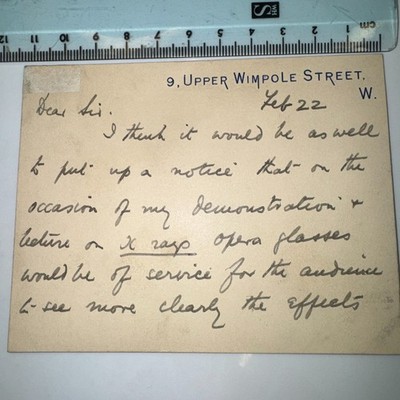 12 11 10 9 8 7 6 5 4 3 2 1 cm
SH
9, UPPER WIMPOLE STREET,
W.
Dear Sir. Feb 22
I think it would be as well
to put up a notice that on the
occasion of my demonstration &
lecture on X rays opera glasses
would be of service for the audience
to see more clearly the effects